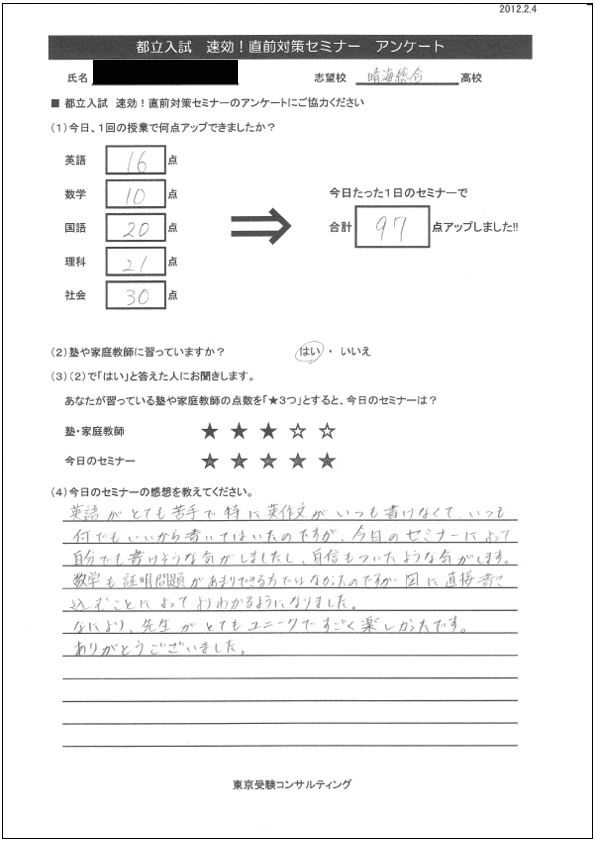 2012.2.4
都立入試 速効！直前対策セミナー アンケート
氏名 志望校 晴海総合 高校
■ 都立入試 速効！直前対策セミナーのアンケートにご協力ください
（1）今日、1回の授業で何点アップできましたか？
英語 16 点
数学 10 点
国語 20 点
理科 21 点
社会 30 点
今日たった1日のセミナーで
合計 97 点アップしました!!
（2）塾や家庭教師に習っていますか？ はい ・ いいえ
（3）（2）で「はい」と答えた人にお聞きします。
あなたが習っている塾や家庭教師の点数を「★3つ」とすると、今日のセミナーは？
塾・家庭教師 ★ ★ ★ ☆ ☆
今日のセミナー ★ ★ ★ ★ ★
（4）今日のセミナーの感想を教えてください。
英語がとても苦手で特に英作文がいつも書けなくて、いつも
何でもいいから書いてはいたのですが、今日のセミナーによって
自分でも書けそうな気がしましたし、自信もついたような気がします。
数学も証明問題があまりできる方ではなかったのですが図に直接書き
込むことによってよりわかるようになりました。
なにより、先生がとてもユニークですごく楽しかったです。
ありがとうございました。
東京受験コンサルティング